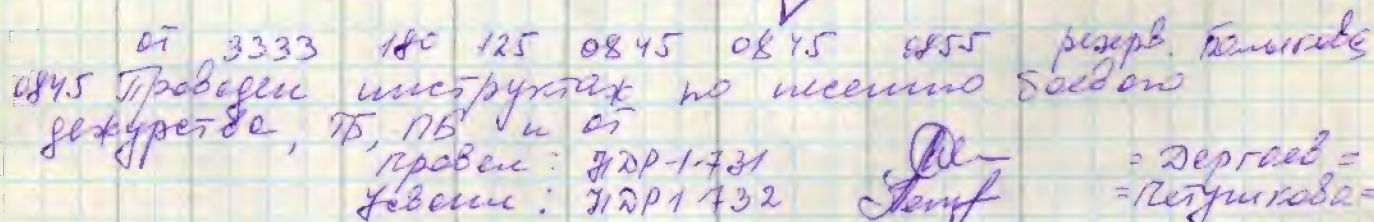 от 3333 180 125 0845 0845 0855 резерв.
0845 Проведен инструктаж по несению боевого
дежурства, ТБ, ПБ и от
провел: НДР-1-731 = Дергаев =
Усвоил: НДР1 732 =Петушкова=